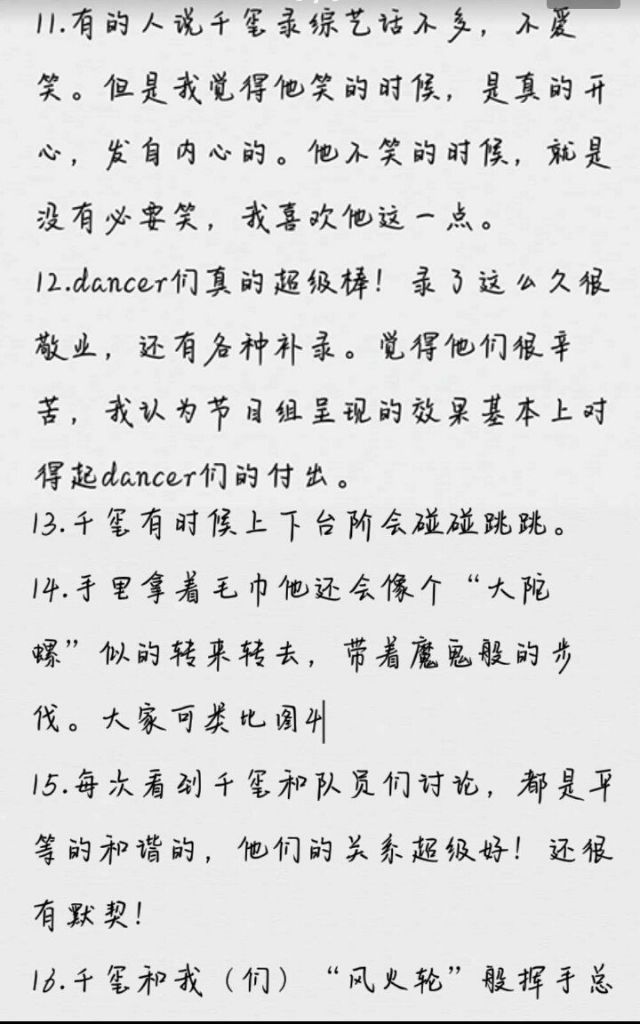 11.有的人说千玺录综艺话不多，不爱
笑。但是我觉得他笑的时候，是真的开
心，发自内心的。他不笑的时候，就是
没有必要笑，我喜欢他这一点。
12.dancer们真的超级棒！录了这么久很
敬业，还有各种补录。觉得他们很辛
苦，我认为节目组呈现的效果基本上对
得起dancer们的付出。
13.千玺有时候上下台阶会碰碰跳跳。
14.手里拿着毛巾他还会像个“大陀
螺”似的转来转去，带着魔鬼般的步
伐。大家可类比图4
15.每次看到千玺和队员们讨论，都是平
等的和谐的，他们的关系超级好！还很
有默契！
16.千玺和我（们）“风火轮”般挥手总